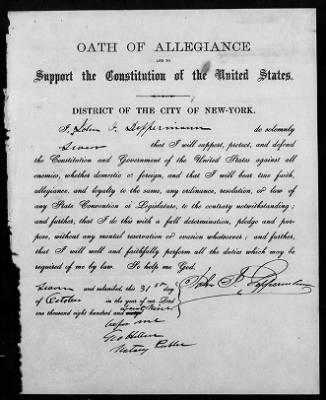 OATH OF ALLEGIANCE
AND TO
Support the Constitution of the United States.
DISTRICT OF THE CITY OF NEW-YORK.
I, John F. Deppermann do solemnly
swear that I will support, protect, and defend
the Constitution and Government of the United States against all
enemies, whether domestic or foreign, and that I will bear true faith,
allegiance, and loyalty to the same, any ordinance, resolution, or law of
any State Convention or Legislature, to the contrary notwithstanding;
and further, that I do this with a full determination, pledge and pur-
pose, without any mental reservation or evasion whatsoever; and further,
that I will well and faithfully perform all the duties which may be
required of me by law. So help me God.
Sworn and subscribed, this 31st day
of October in the year of our Lord
one thousand eight hundred and
John F. Deppermann
before me
Notary Public